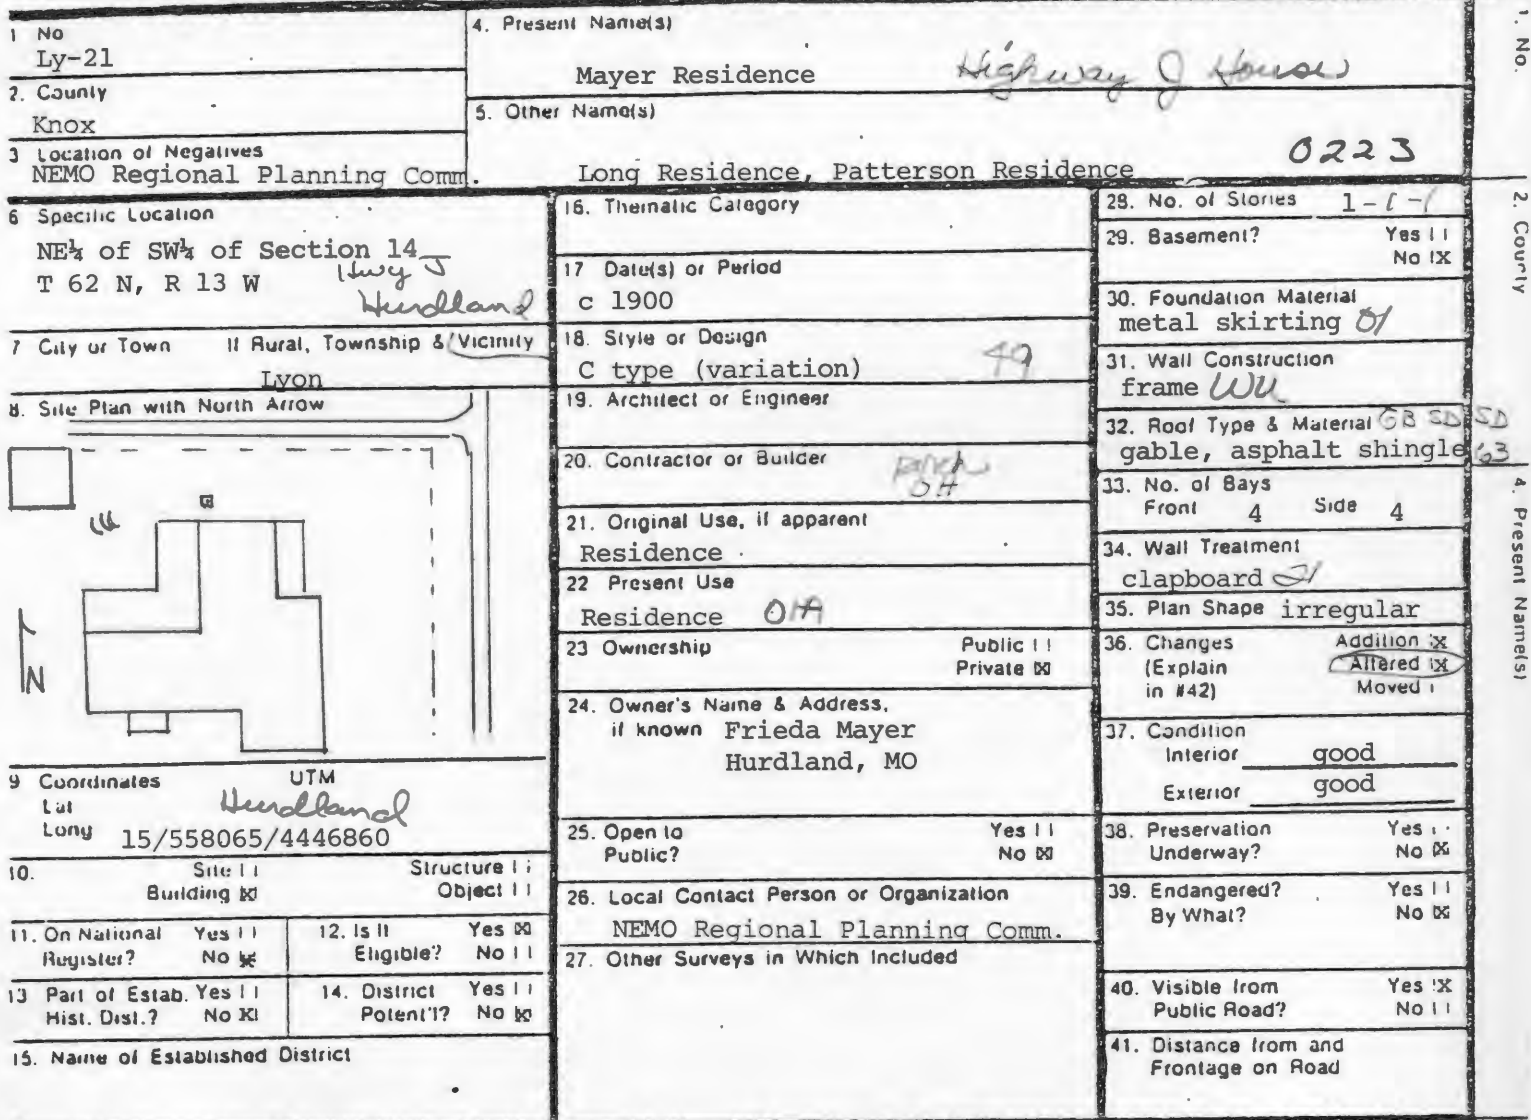 1 No
Ly-21
2. County
Knox
3 Location of Negatives
NEMO Regional Planning Comm.
4. Present Name(s)
Mayer Residence Highway J House
5. Other Name(s)
0223
Long Residence, Patterson Residence
6 Specific Location
NE¼ of SW¼ of Section 14
T 62 N, R 13 W
Hwy J
Hurdland
7 City or Town If Rural, Township & Vicinity
Lyon
8. Site Plan with North Arrow
N
9 Coordinates UTM
Lat Hurdland
Long 15/558065/4446860
10. Site Structure
Building X Object
11. On National Yes
Register? No X
12. Is It Yes X
Eligible? No
13 Part of Estab. Yes
Hist. Dist.? No X
14. District Yes
Potent'l? No X
15. Name of Established District
16. Thematic Category
17 Date(s) or Period
c 1900
18. Style or Design
C type (variation) 49
19. Architect or Engineer
20. Contractor or Builder
porch
OH
21. Original Use, if apparent
Residence
22 Present Use
Residence 01A
23 Ownership Public
Private X
24. Owner's Name & Address,
if known Frieda Mayer
Hurdland, MO
25. Open to Yes
Public? No X
26. Local Contact Person or Organization
NEMO Regional Planning Comm.
27. Other Surveys in Which Included
28. No. of Stories 1-1-1
29. Basement? Yes
No X
30. Foundation Material
metal skirting 01
31. Wall Construction
frame WU
32. Roof Type & Material GB SD SD
gable, asphalt shingle 63
33. No. of Bays
Front 4 Side 4
34. Wall Treatment
clapboard 21
35. Plan Shape irregular
36. Changes Addition X
(Explain Altered X
in #42) Moved
37. Condition
Interior good
Exterior good
38. Preservation Yes
Underway? No X
39. Endangered? Yes
By What? No X
40. Visible from Yes X
Public Road? No
41. Distance from and
Frontage on Road
1. No.
2. County
4. Present Name(s)